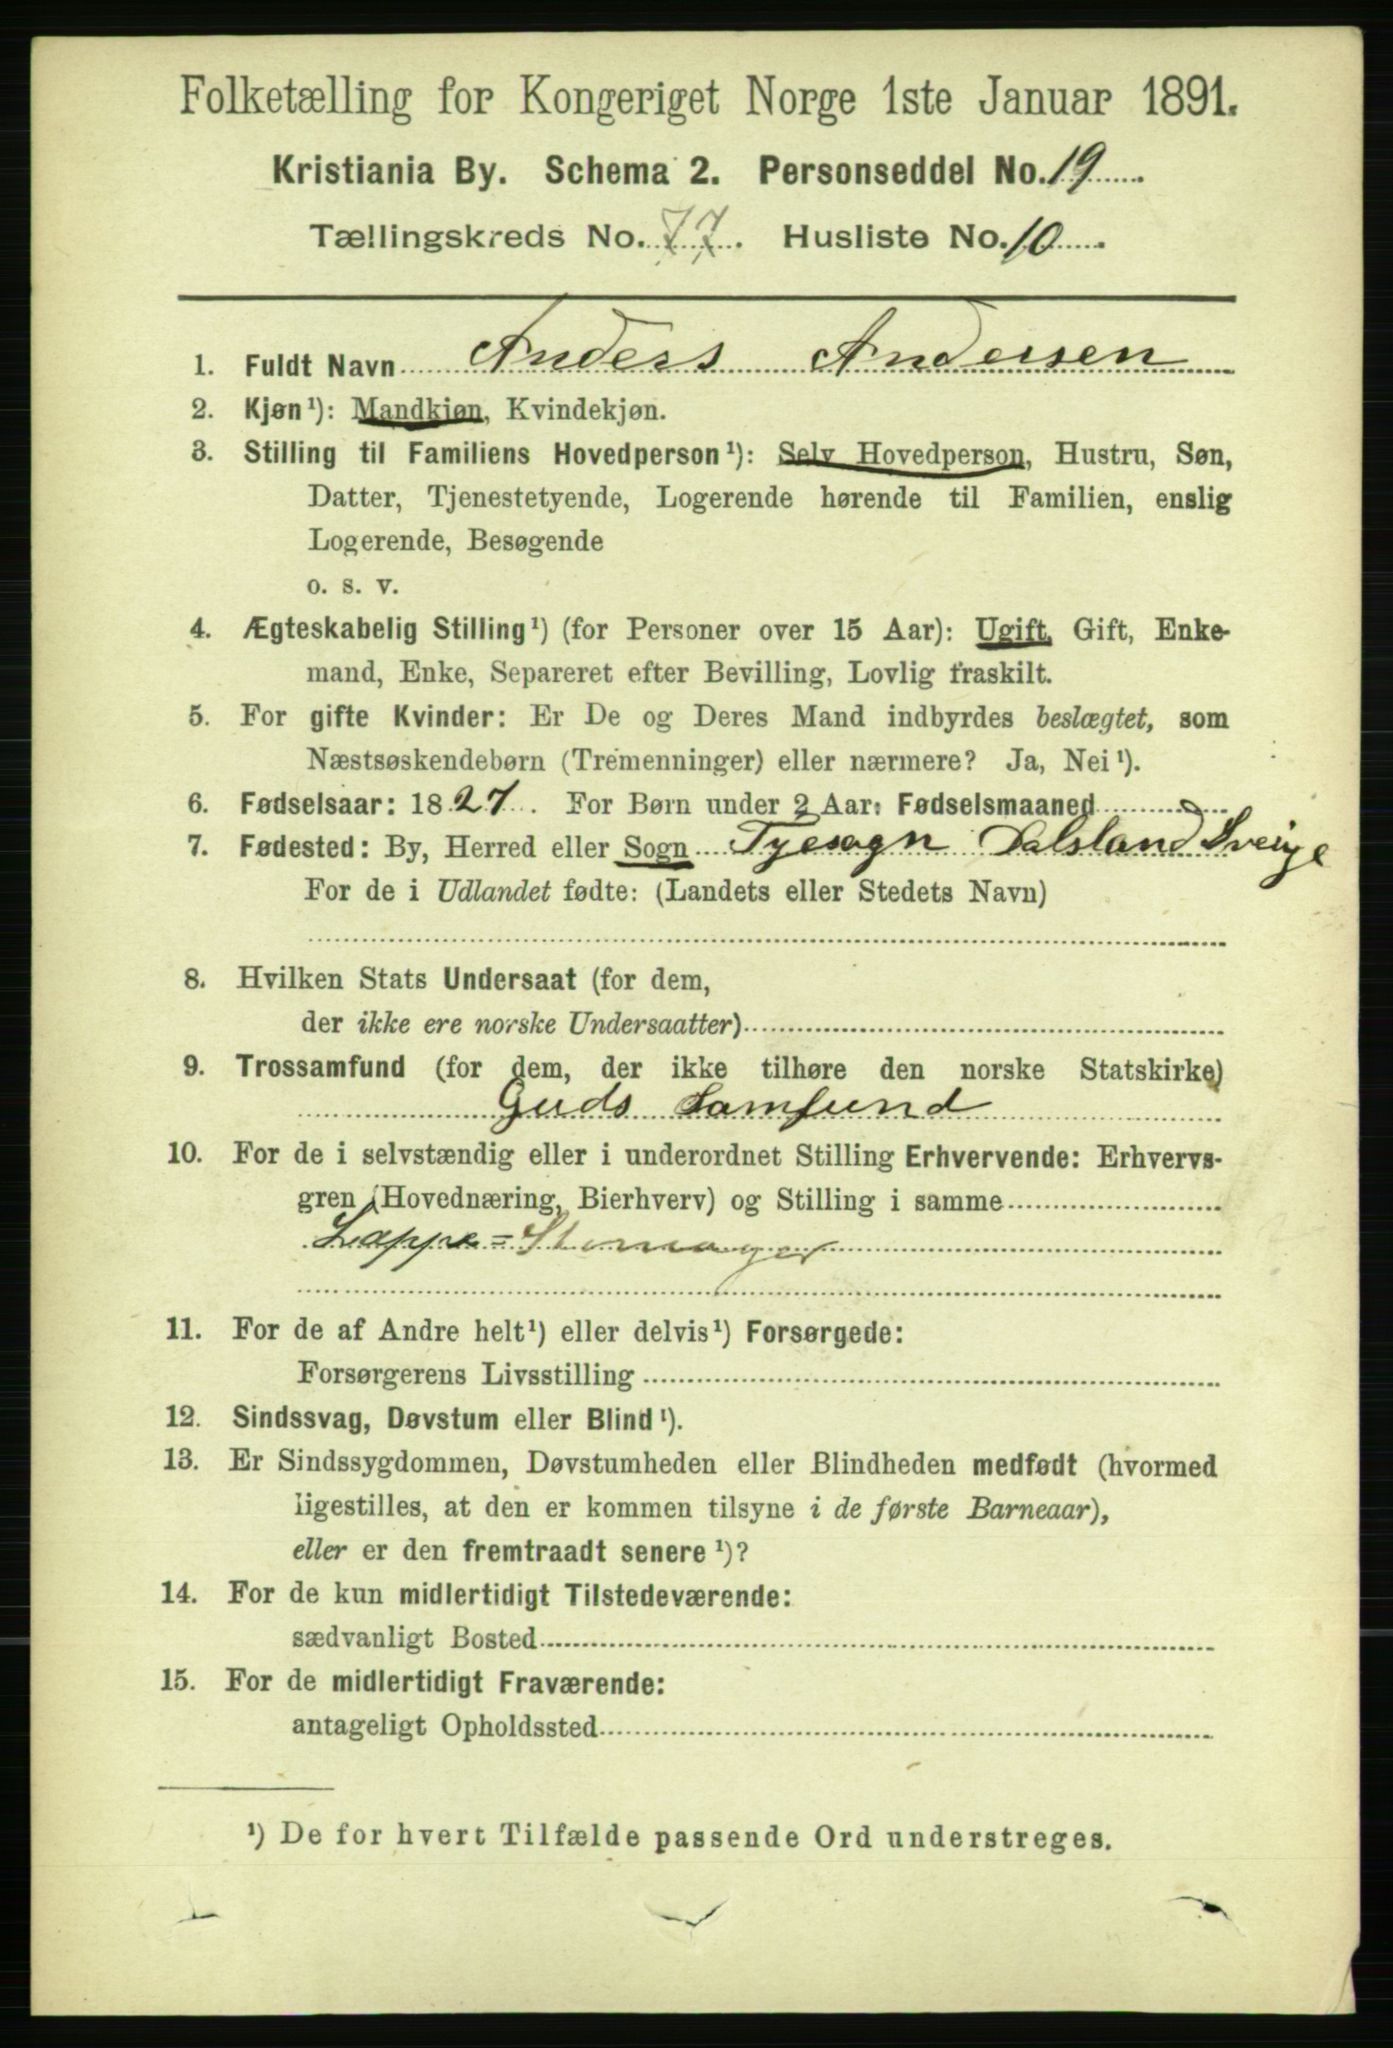 Folketælling for Kongeriget Norge 1ste Januar 1891.
Kristiania By. Schema 2. Personseddel No. 19
Tællingskreds No. 77. Husliste No. 10
1. Fuldt Navn Anders Andersen
2. Kjøn¹): Mandkjøn, Kvindekjøn.
3. Stilling til Familiens Hovedperson¹): Selv Hovedperson, Hustru, Søn,
Datter, Tjenestetyende, Logerende hørende til Familien, enslig
Logerende, Besøgende
o. s. v.
4. Ægteskabelig Stilling¹) (for Personer over 15 Aar): Ugift, Gift, Enke-
mand, Enke, Separeret efter Bevilling, Lovlig fraskilt.
5. For gifte Kvinder: Er De og Deres Mand indbyrdes beslægtet, som
Næstsøskendebørn (Tremenninger) eller nærmere? Ja, Nei¹).
6. Fødselsaar: 1827. For Børn under 2 Aar: Fødselsmaaned
7. Fødested: By, Herred eller Sogn Tyesogn Dalsland Sverige
For de i Udlandet fødte: (Landets eller Stedets Navn)
8. Hvilken Stats Undersaat (for dem,
der ikke ere norske Undersaatter)
9. Trossamfund (for dem, der ikke tilhøre den norske Statskirke)
Guds Samfund
10. For de i selvstændig eller i underordnet Stilling Erhvervende: Erhvervs-
gren (Hovednæring, Bierhverv) og Stilling i samme
Lappe=
11. For de af Andre helt¹) eller delvis¹) Forsørgede:
Forsørgerens Livsstilling
12. Sindssvag, Døvstum eller Blind¹).
13. Er Sindssygdommen, Døvstumheden eller Blindheden medfødt (hvormed
ligestilles, at den er kommen tilsyne i de første Barneaar),
eller er den fremtraadt senere¹)?
14. For de kun midlertidigt Tilstedeværende:
sædvanligt Bosted
15. For de midlertidigt Fraværende:
antageligt Opholdssted
¹) De for hvert Tilfælde passende Ord understreges.